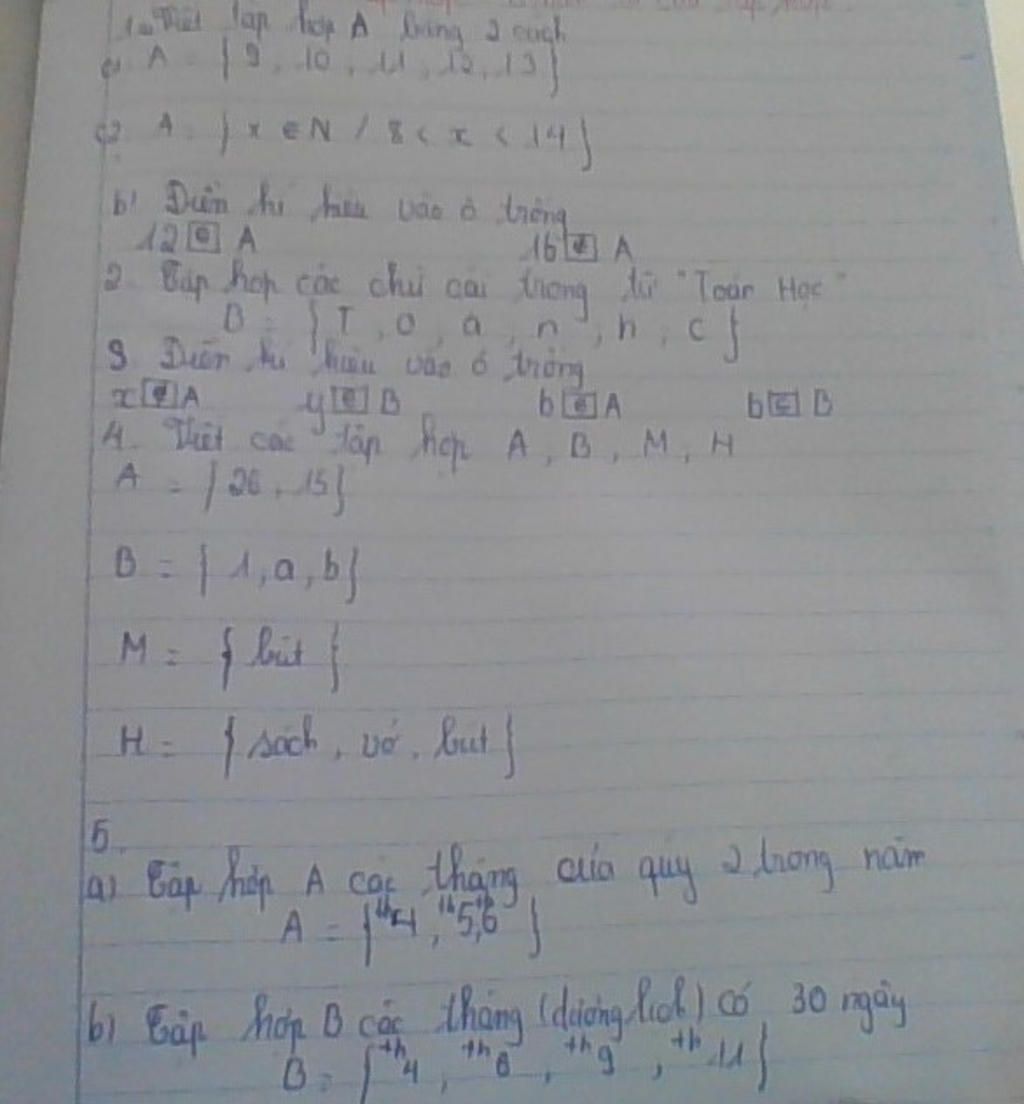 1. Viết tập hợp A bằng 2 cách
c1 A = { 9, 10, 11, 12, 13 }
c2 A = { x ∈ N / 8 < x < 14 }
b) Điền kí hiệu vào ô trống
12 ∈ A 16 ∉ A
2. Tập hợp các chữ cái trong từ "Toán Học"
B = { T, O, a, n, h, c }
3 Điền kí hiệu vào ô trống
x ∉ A y ∈ B b ∈ A b ∈ B
4. Viết các tập hợp A, B, M, H
A = { 26, 15 }
B = { 1, a, b }
M = { bút }
H = { sách, vở, bút }
5.
a) Tập hợp A các tháng của quý 2 trong năm
A = { th 4, th 5, th 6 }
b) Tập hợp B các tháng (dương lịch) có 30 ngày
B = { th 4, th 6, th 9, th 11 }